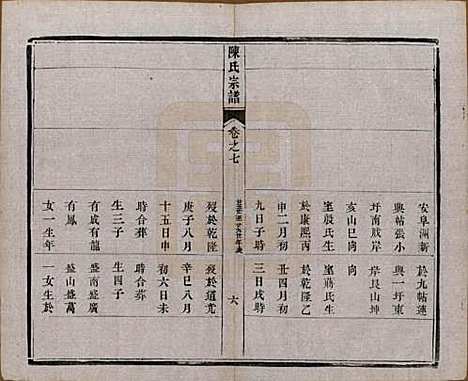 安阜洲新
興帖張小
坪南戚岸
亥山巳向
室殷氏生
於康熙丙
申二月初
九日子時
於九帖蓮
興一坪東
岸艮山坤
向
室蔣氏生
於乾隆乙
丑四月初
三日戌時
陳氏宗譜
卷之七
六
歿於乾隆
庚子八月
十五日申
時合葬
生三子
有成有龍
有鳳
女一生年
歿於道光
辛巳八月
初六日未
時合葬
生四子
盛南盛廣
盛山盛萬
一女生於